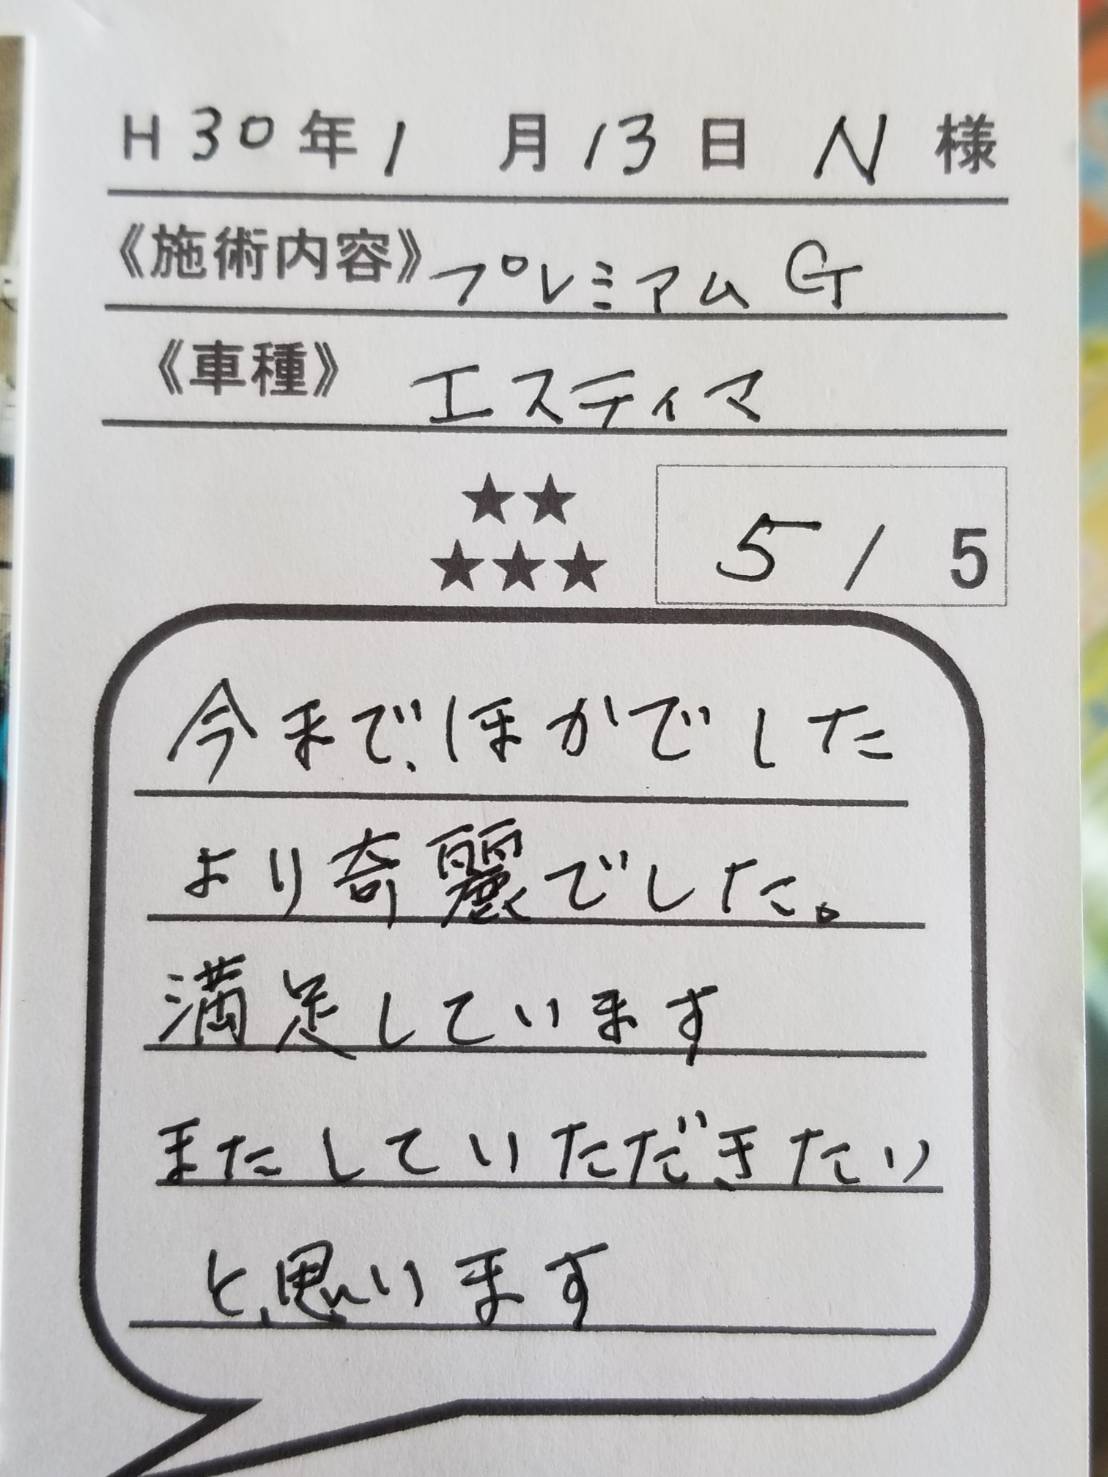 H30年1月13日 N 様
《施術内容》プレミアムG
《車種》エスティマ
★★
★★★
5/5
今まで、ほかでした
より奇麗でした。
満足しています
またしていただきたい
と思います